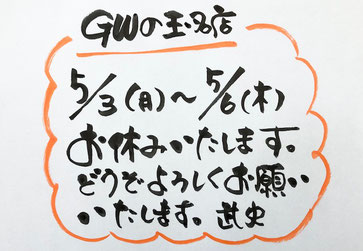 GWの玉名店
5/3(月)〜5/6(木)
お休みいたします。
どうぞよろしくお願い
いたします。武史